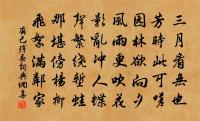 三月看無也
芳時此可嗟
園林欲向夕
風雨更吹花
影亂沖人蝶
聲繁繞塹蛙
那堪傍楊柳
飛絮滿鄰家